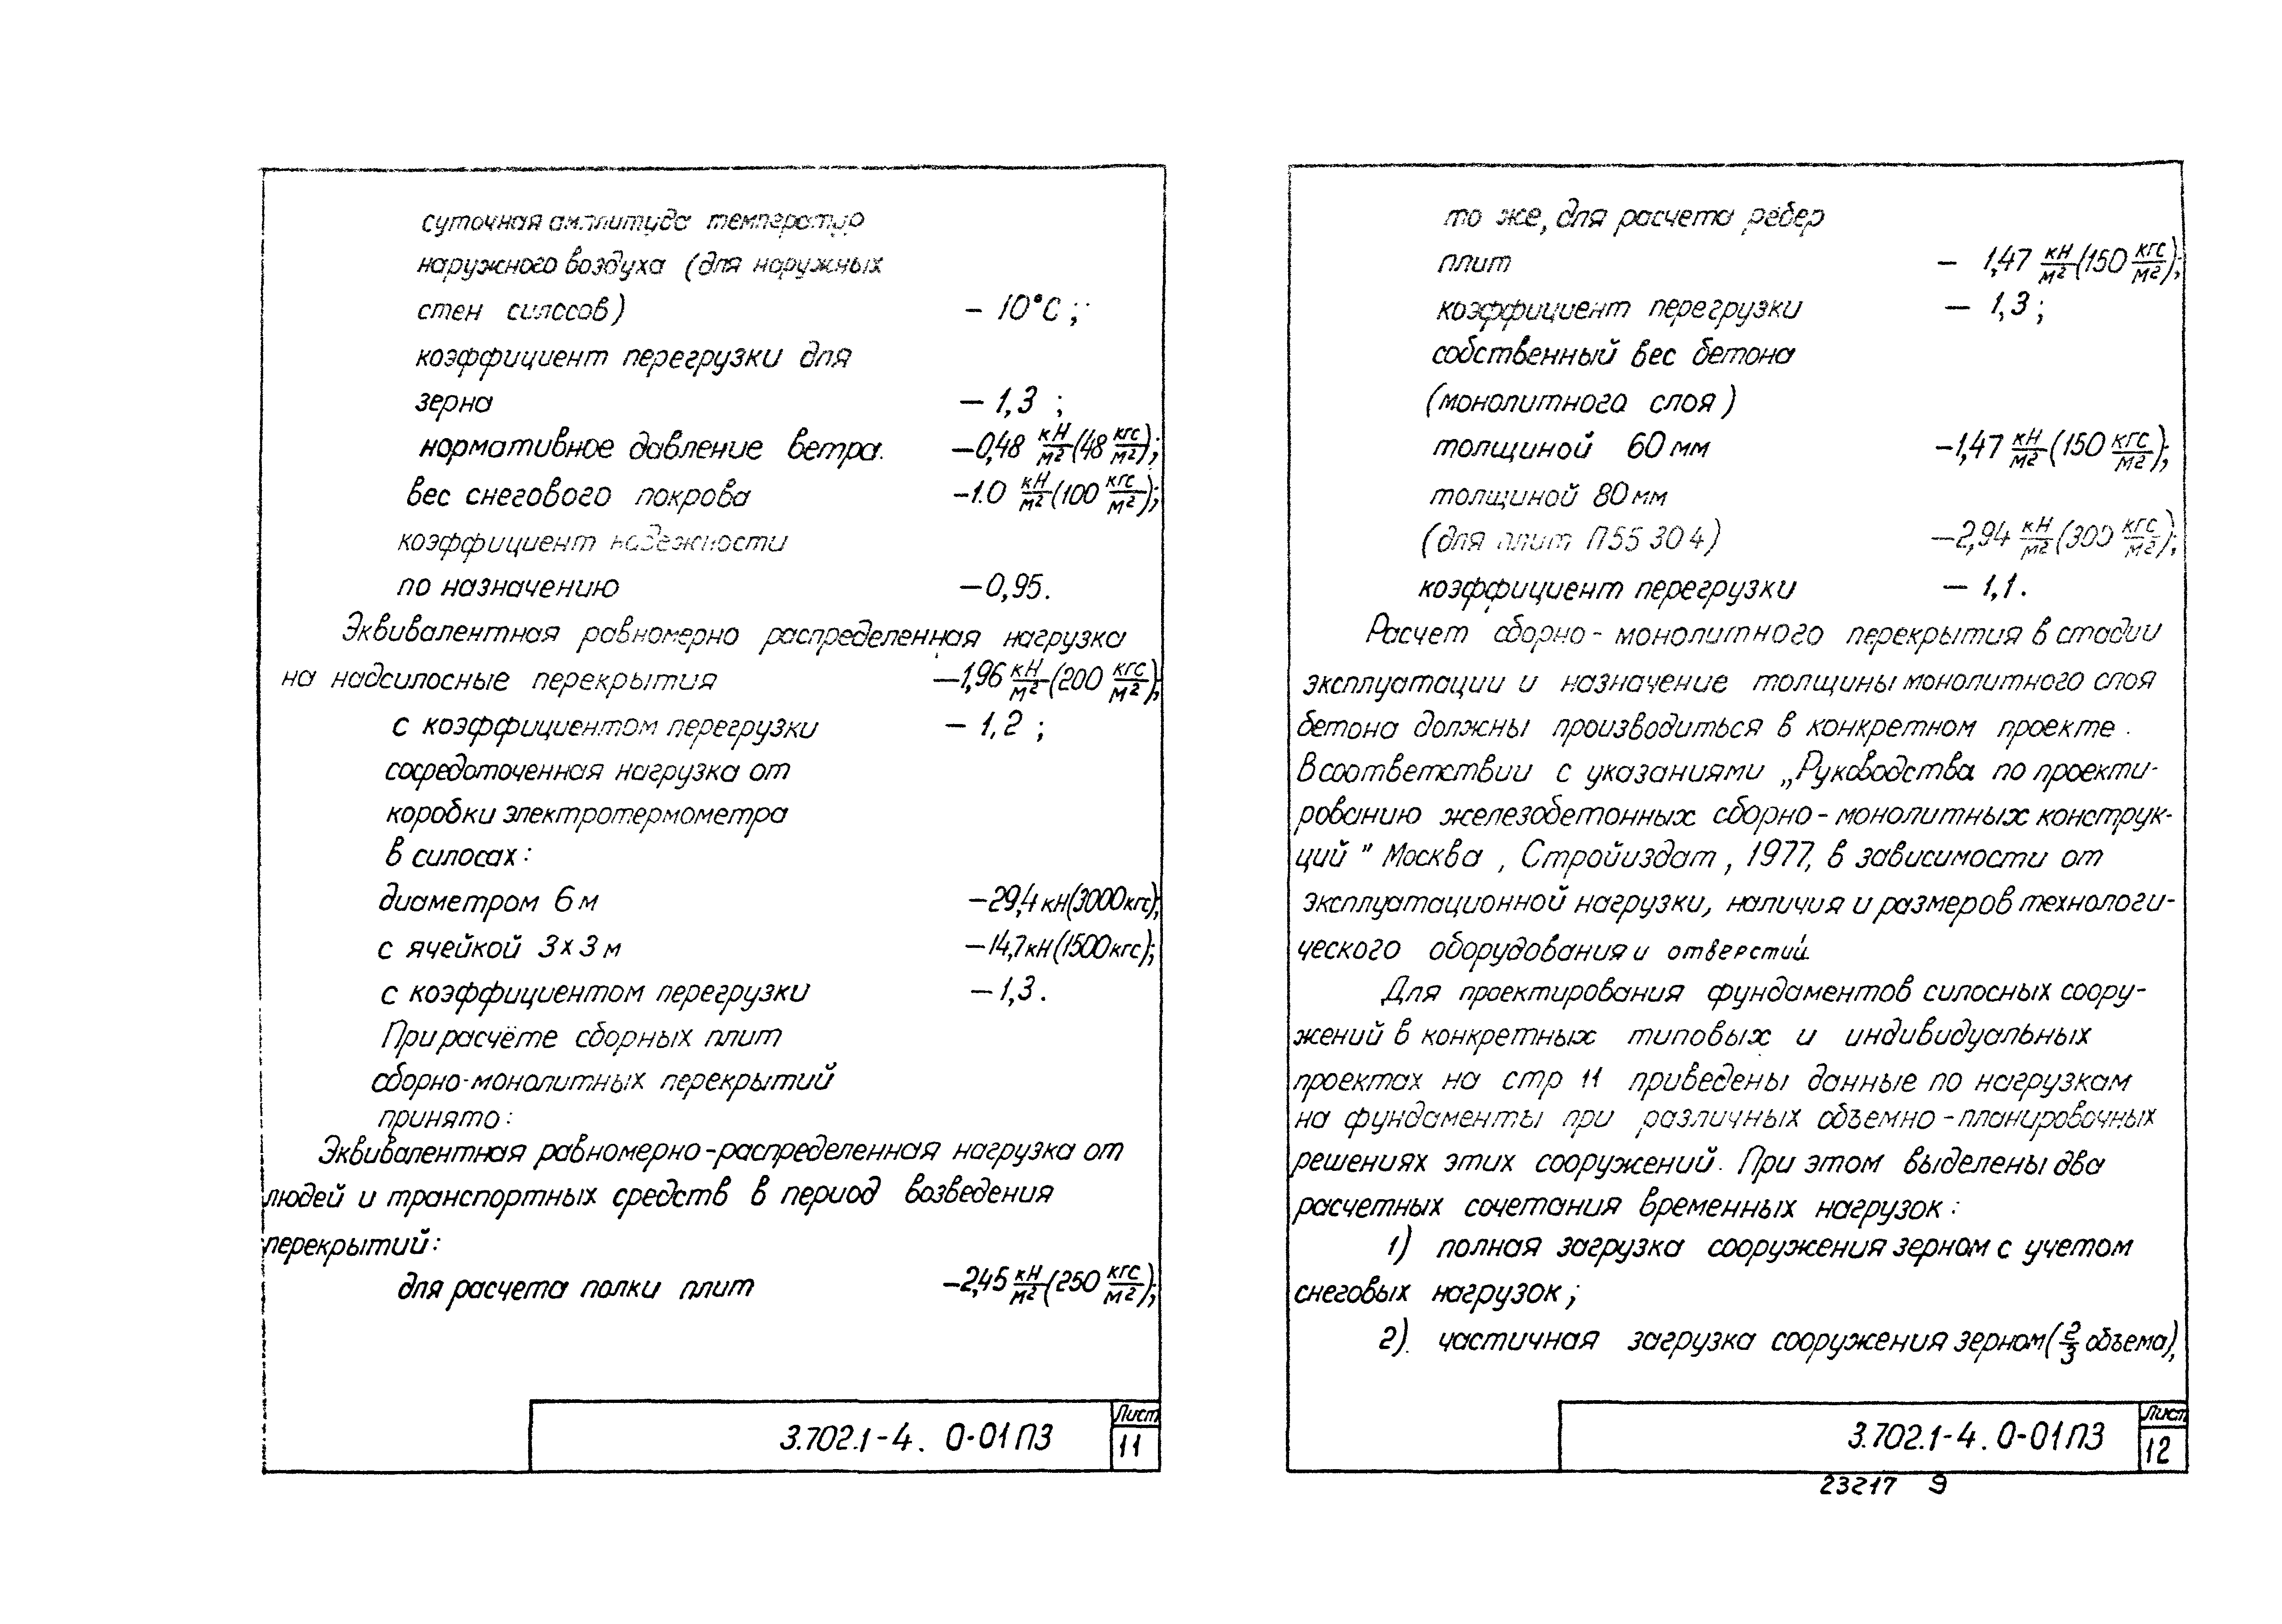 суточная амплитуда температур
наружного воздуха (для наружных
стен силосов) - 10°С ;
коэффициент перегрузки для
зерна — 1,3 ;
нормативное давление ветра. —0,48 кН/м² (48 кгс/м²);
вес снегового покрова -1.0 кН/м² (100 кгс/м²);
коэффициент надежности
по назначению —0,95.
Эквивалентная равномерно распределенная нагрузка
на надсилосные перекрытия —1,96 кН/м² (200 кгс/м²);
с коэффициентом перегрузки — 1,2 ;
сосредоточенная нагрузка от
коробки электротермометра
в силосах:
диаметром 6 м —29,4 кН(3000кгс);
с ячейкой 3х3 м —14,7 кН(1500кгс);
с коэффициентом перегрузки —1,3.
При расчёте сборных плит
сборно-монолитных перекрытий
принято:
Эквивалентная равномерно-распределенная нагрузка от
людей и транспортных средств в период возведения
перекрытий:
для расчета полки плит —2,45 кН/м² (250 кгс/м²);
3.702.1-4. 0-01ПЗ
Лист
11
то же, для расчета рёбер
плит — 1,47 кН/м² (150 кгс/м²);
коэффициент перегрузки — 1,3 ;
собственный вес бетона
(монолитного слоя)
толщиной 60 мм —1,47 кН/м² (150 кгс/м²);
толщиной 80 мм
(для плит П55 30 4) —2,94 кН/м² (300 кгс/м²);
коэффициент перегрузки — 1,1.
Расчет сборно-монолитного перекрытия в стадии
эксплуатации и назначение толщины монолитного слоя
бетона должны производиться в конкретном проекте.
В соответствии с указаниями „Руководства по проекти-
рованию железобетонных сборно-монолитных конструк-
ций" Москва, Стройиздат, 1977, в зависимости от
эксплуатационной нагрузки, наличия и размеров технологи-
ческого оборудования и отверстий.
Для проектирования фундаментов силосных соору-
жений в конкретных типовых и индивидуальных
проектах на стр 11 приведены данные по нагрузкам
на фундаменты при различных объемно-планировочных
решениях этих сооружений. При этом выделены два
расчетных сочетания временных нагрузок:
1) полная загрузка сооружения зерном с учетом
снеговых нагрузок;
2). частичная загрузка сооружения зерном (2/3 объема),
3.702.1-4. 0-01ПЗ
Лист
12
23217 9